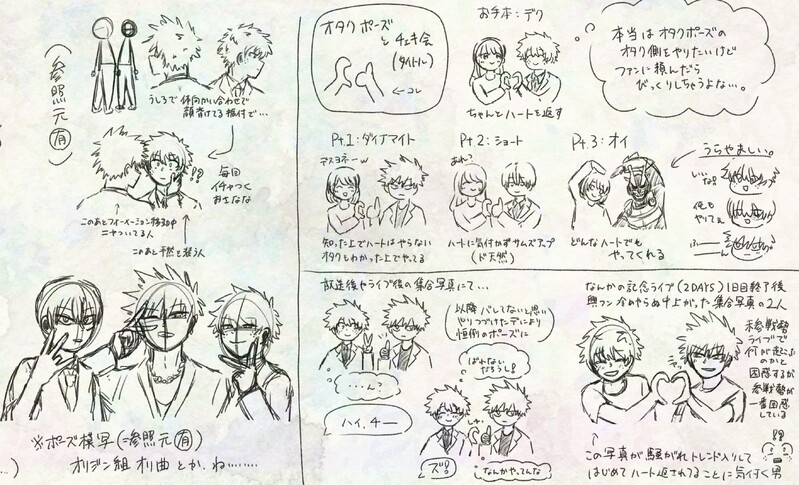 (参照元有)
うしろで体向かい合わせで
顔背けてる振付で…
毎回
イチャつく
おさななな
このあとフォーメーション移動中
ニヤついてる人
このあと平然と装う人
※ポーズ模写(=参照元有)
オリジン組オリ曲とか、ね………
…)
オタクポーズ
とチェキ会
(タイトル)
←コレ
お手本:デク
ちゃんとハートを返す
本当はオタクポーズの
オタク側をやりたいけど
ファンに頼んだら
びっくりしちゃうよな…。
Pt.1:ダイナマイト
デスヨネーw
知った上でハートはやらない
オタクもわかった上でやってる
Pt.2:ショート
あれ?
ハートに気付かずサムズアップ
(ド天然)
Pt.3:オイ
どんなハートでも
やってくれる
うらやましい。
いいな!
俺も
やりてぇ
ふーん
放送後やライブ後の集合写真にて…
・・・ん?
ハイ、チー
以降バレてないと思い
やりつづけたデにより
恒例のポーズに
ばれない
だろうし!
ズ!
なんかやってんな
なんかの記念ライブ(2DAYS)1日目終了後
興フン冷めやらぬ中上がった集合写真の2人
未参戦勢
ライブで
何が起こった
のかと
困惑するが
参戦勢が
一番困惑
している
この写真が騒がれトレンド入りして
はじめてハート返されてることに気付く男